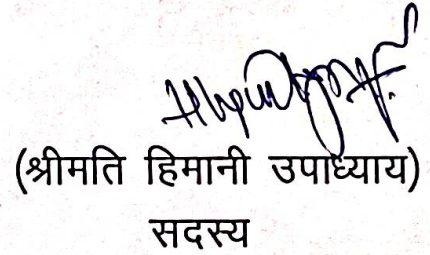 (श्रीमति हिमानी उपाध्याय)
सदस्य